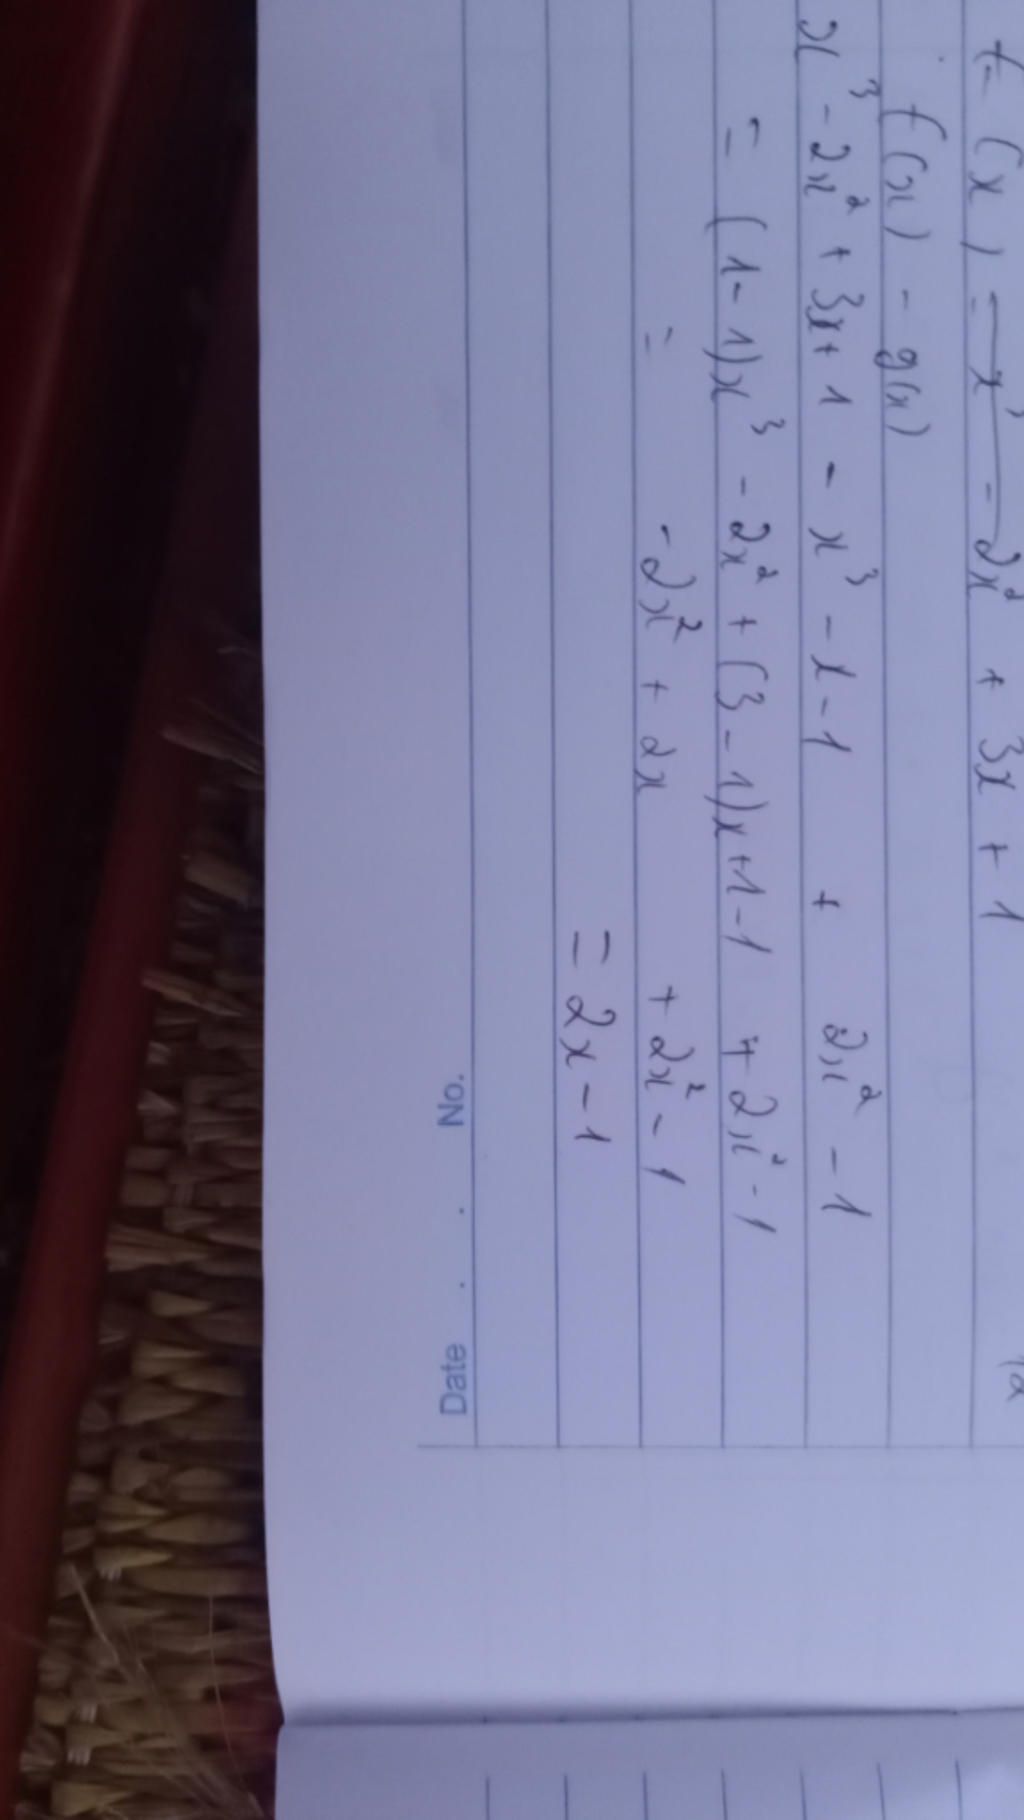 f(x) = x³ - 2x² + 3x + 1
f(x) - g(x)
x³ - 2x² + 3x + 1 - x³ - x - 1 + 2x² - 1
= (1 - 1)x³ - 2x² + (3 - 1)x + 1 - 1 + 2x² - 1
= -2x² + 2x + 2x² - 1
= 2x - 1
No.
Date . .